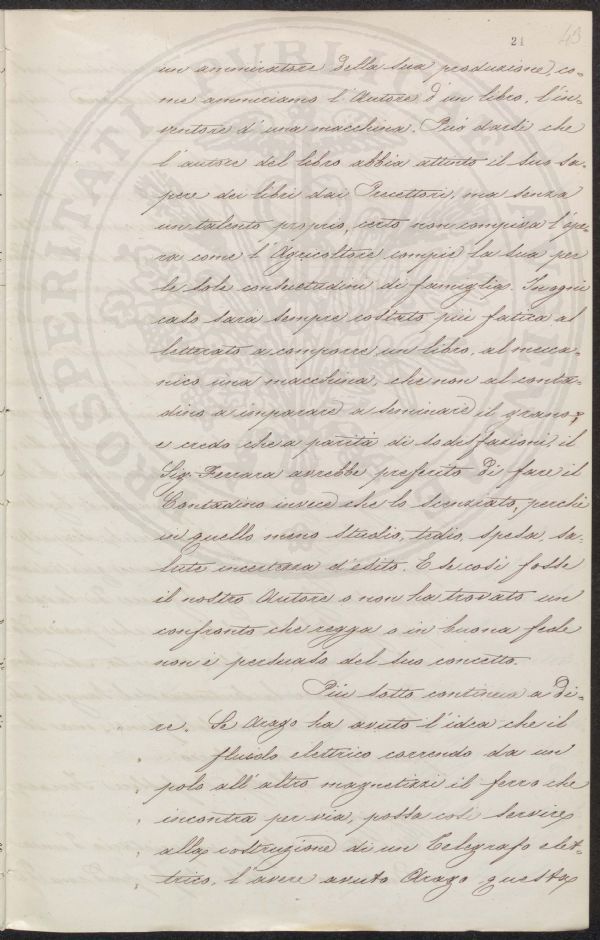 21
43
un ammiratore della sua produzione, co-
me ammiriamo l'Autore d'un libro, l'in-
ventore d'una macchina. Può darsi che
l'autore del libro abbia attinto il suo sa-
pere dei libri dai Precettori, ma senza
un talento proprio, certo non compiva l'ope-
ra come l'Agricoltore compie la sua per
le sole consuetudini di famiglia. In ogni
caso sarà sempre costato più fatica al
letterato a comporre un libro, al mecca-
nico una macchina, che non al conta-
dino a imparare a seminare il grano;
e credo che a parità di sodesfazioni, il
Sig. Ferrara avrebbe preferito di fare il
Contadino invece che lo scenziato, perchè
in quello meno studio, tedio, spesa, sa-
lute incertezza d'esito. E se così fosse
il nostro Autore o non ha trovato un
confronto che regga o in buona fede
non è persuaso del suo concetto.
Più sotto continua a di-
re. Se Arago ha avuto l'idea che il
fluido elettrico correndo da un
polo all'altro magnetizzi il ferro che
incontra per via, possa così servire
alla costruzione di un Telegrafo elet-
trico, l'avere avuto Arago questa
PROSPERITATI PVBLICAE